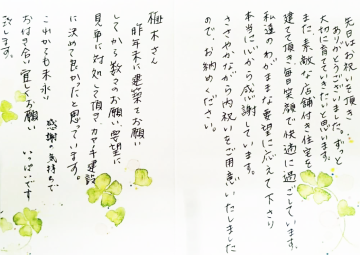 先日はお祝いを頂き、
ありがとうございました。ずっと
大切に育てていきたいと思います。
また、素敵な店舗付き住宅を
建てて頂き毎日笑顔で快適に過ごしています。
私達のわがままな要望に応えて下さり
本当に心から感謝しています。
ささやかながら内祝いをご用意いたしました
ので、お納めください。
植木さん
昨年末に建築でお願い
してから数々のお願い、要望に
見事に対処して頂き カヤキ建設
に決めて良かったと思っています。
感謝の気持ちで
いっぱいです
これからも末永い
お付き合い宜しくお願い
致します。